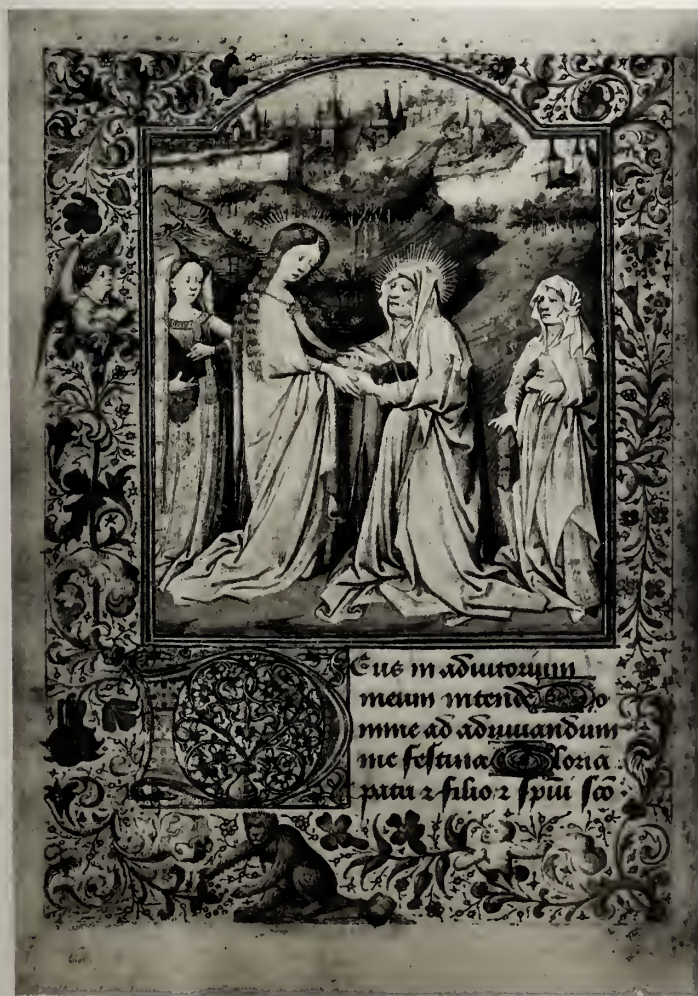 Deus in adiutorium
meum intende Do
mine ad adiuuandum
me festina Gloria
patri ⁊ filio ⁊ spui sco